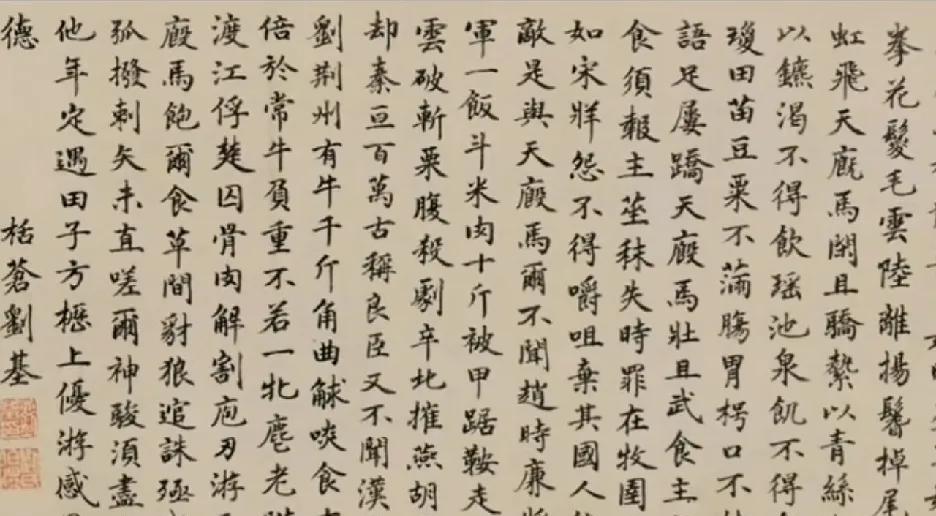 拳花鬉毛雲陸離揚鬐掉尾
虹飛天廐馬閑且驕縶以青絲
以鑣渴不得飲瑶池泉飢不得
瓊田苗豆粟不滿腸胃枵口不
語足屢蹻天廐馬壯且武食主
食須報主莝秣失時罪在牧圉
如宋牂怨不得嚼咀棄其國人
敵是與天廐馬爾不聞趙時廉
軍一飯斗米肉十斤被甲踞鞍走
雲破斬栗腹殺劇辛北摧燕胡
却秦亘百萬古稱良臣又不聞漢
劉荆州有牛千斤角曲觩啖食
倍於常牛負重不若一牝麈老
渡江俘楚囚骨肉解割庖刃游
廐馬飽爾食草間豺狼追誅殛
孤撥刺矢未直嗟爾神駿須盡
他年定遇田子方櫪上優游感
德
栝蒼劉基